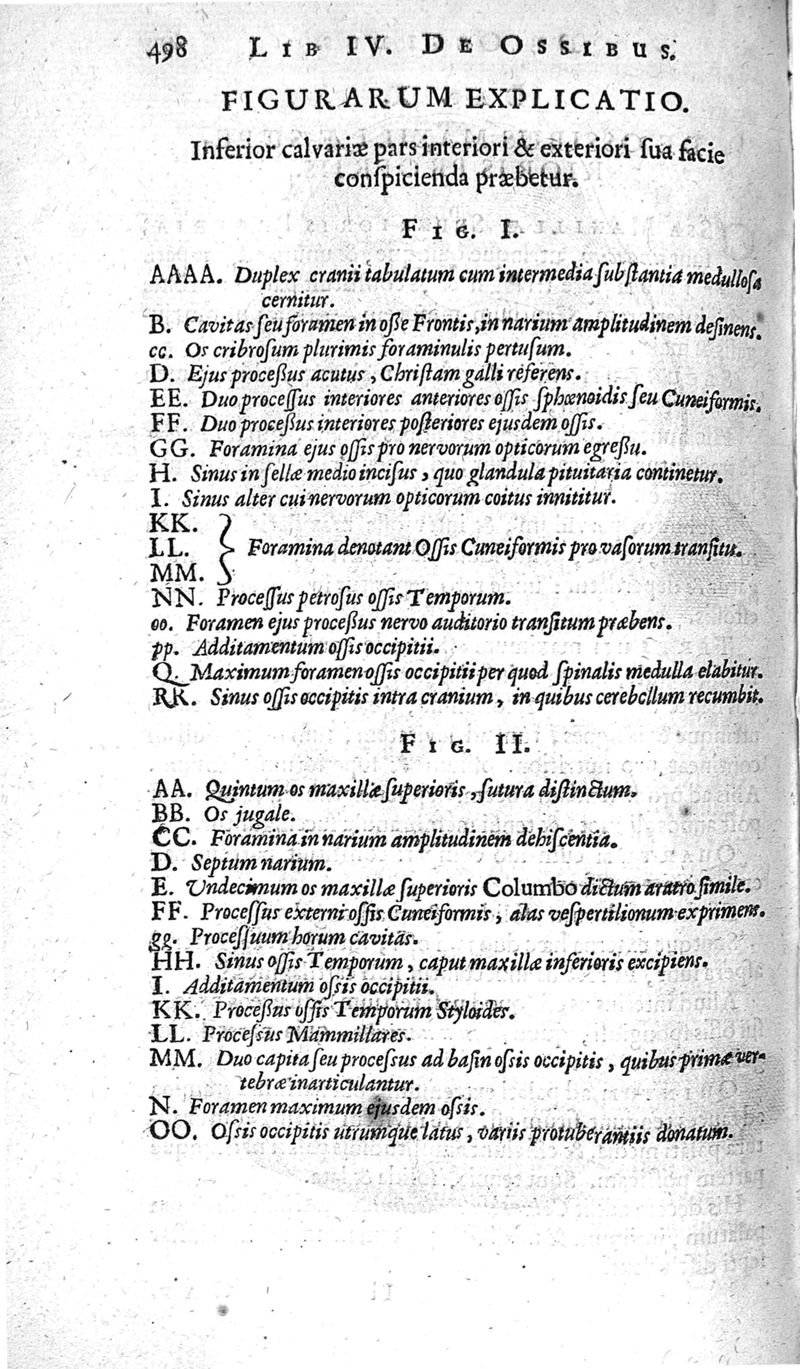 498 LIB IV. DE OSSIBUS.
FIGURARUM EXPLICATIO.
Inferior calvariæ pars interiori & exteriori ſua facie
conſpicienda præbetur.
FIG. I.
AAAA. Duplex cranii tabulatum cum intermedia ſubſtantia medulloſa
cernitur.
B. Cavitas ſeu foramen in oſſe Frontis, in narium amplitudinem deſinens.
cc. Os cribroſum plurimis foraminulis pertuſum.
D. Ejus proceſſus acutus, Chriſtam galli referens.
EE. Duo proceſſus interiores anteriores oſſis ſphœnoidis ſeu Cuneiformis.
FF. Duo proceſſus interiores poſteriores ejusdem oſſis.
GG. Foramina ejus oſſis pro nervorum opticorum egreſſu.
H. Sinus in ſellæ medio inciſus, quo glandula pituitaria continetur.
I. Sinus alter cui nervorum opticorum coitus innititur.
KK.
LL. } Foramina denotant Oſſis Cuneiformis pro vaſorum tranſitu.
MM.
NN. Proceſſus petroſus oſſis Temporum.
oo. Foramen ejus proceſſus nervo auditorio tranſitum præbens.
pp. Additamentum oſſis occipitii.
Q. Maximum foramen oſſis occipitii per quod ſpinalis medulla elabitur.
RR. Sinus oſſis occipitis intra cranium, in quibus cerebellum recumbit.
FIG. II.
AA. Quintum os maxillæ ſuperioris, ſutura diſtinctum.
BB. Os jugale.
CC. Foramina in narium amplitudinem dehiſcentia.
D. Septum narium.
E. Undecimum os maxillæ ſuperioris Columbo dictum aratro ſimile.
FF. Proceſſus externi oſſis Cuneiformis, alas veſpertilionum exprimens.
gg. Proceſſuum horum cavitas.
HH. Sinus oſſis Temporum, caput maxillæ inferioris excipiens.
I. Additamentum oſsis occipitii.
KK. Proceſſus oſſis Temporum Styloides.
LL. Proceſsus Mammillares.
MM. Duo capita ſeu proceſſus ad baſin oſsis occipitis, quibus primæ ver-
tebræ inarticulantur.
N. Foramen maximum ejusdem oſsis.
OO. Oſsis occipitis utrumque latus, variis protuberantiis donatum.